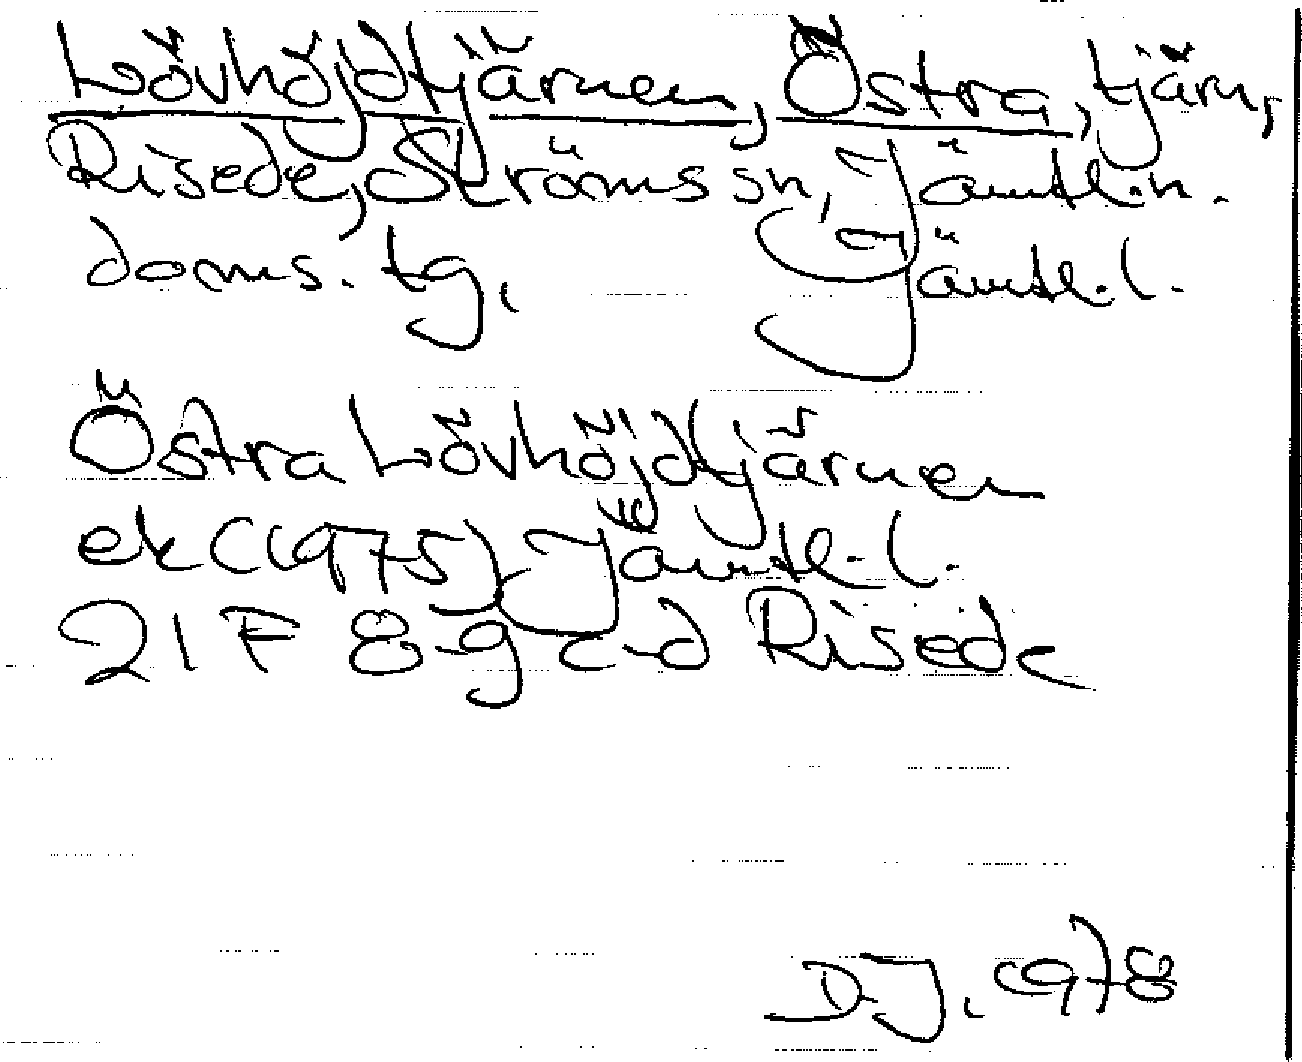 Lövhöjdtjärnen, Östra, tjärn,
Risede, Ströms sn, Jämtl. n.
doms. tg, Jämtl. l.
Östra Lövhöjdtjärnen
ek (1975) Jämtl. l.
21 F 8-g c-d Risede
D. J. 1978